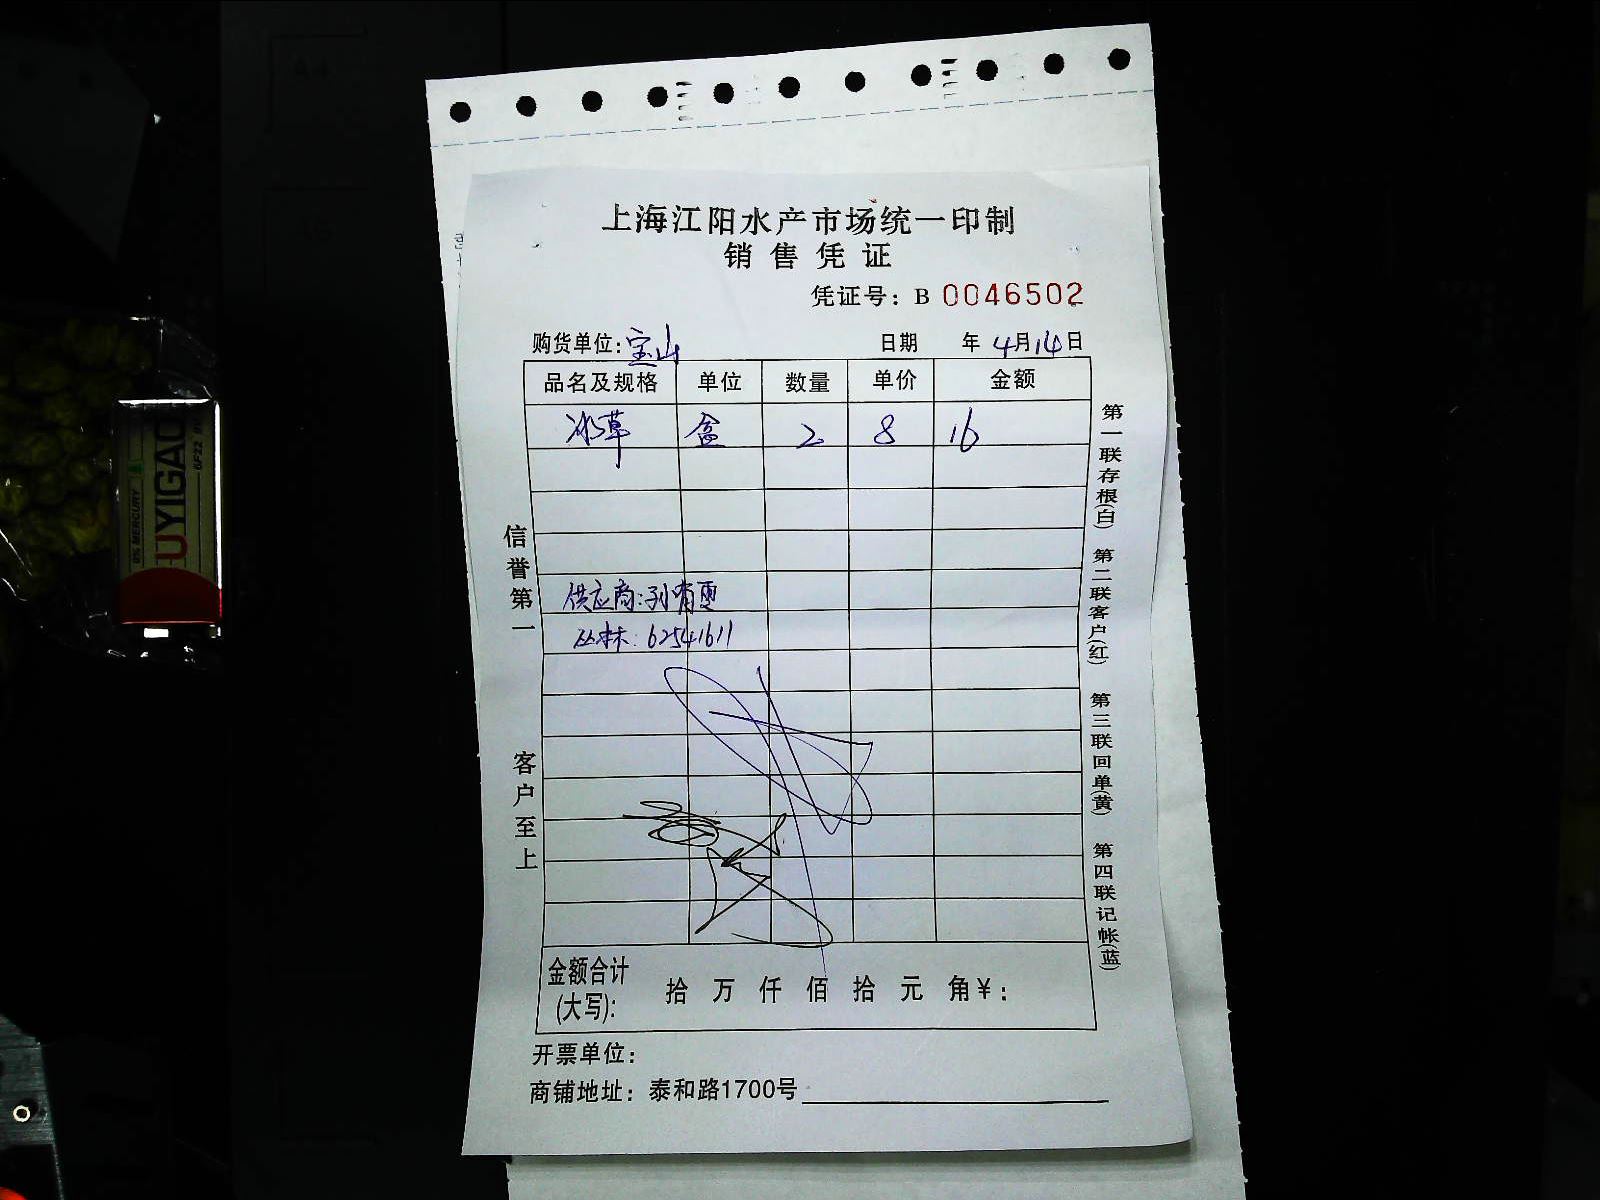 上海江阳水产市场统一印制
销售凭证
凭证号：B 0046502
购货单位：宝山 日期 年 4月14日
品名及规格 单位 数量 单价 金额
冰草 盒 2 8 16
供应商：孙
丛林：62541611
金额合计(大写)： 拾 万 仟 佰 拾 元 角 ¥：
开票单位：
商铺地址：泰和路1700号
信誉第一
客户至上
第一联存根(白) 第二联客户(红) 第三联回单(黄) 第四联记帐(蓝)
0% MERCURY
UYIGAO
6F22